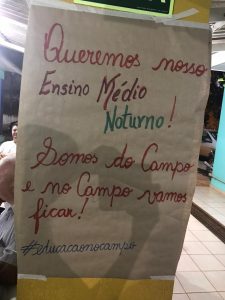 Queremos nosso
Ensino Médio
Noturno!
Somos do Campo
e no Campo vamos
ficar!
#educacaonocampo